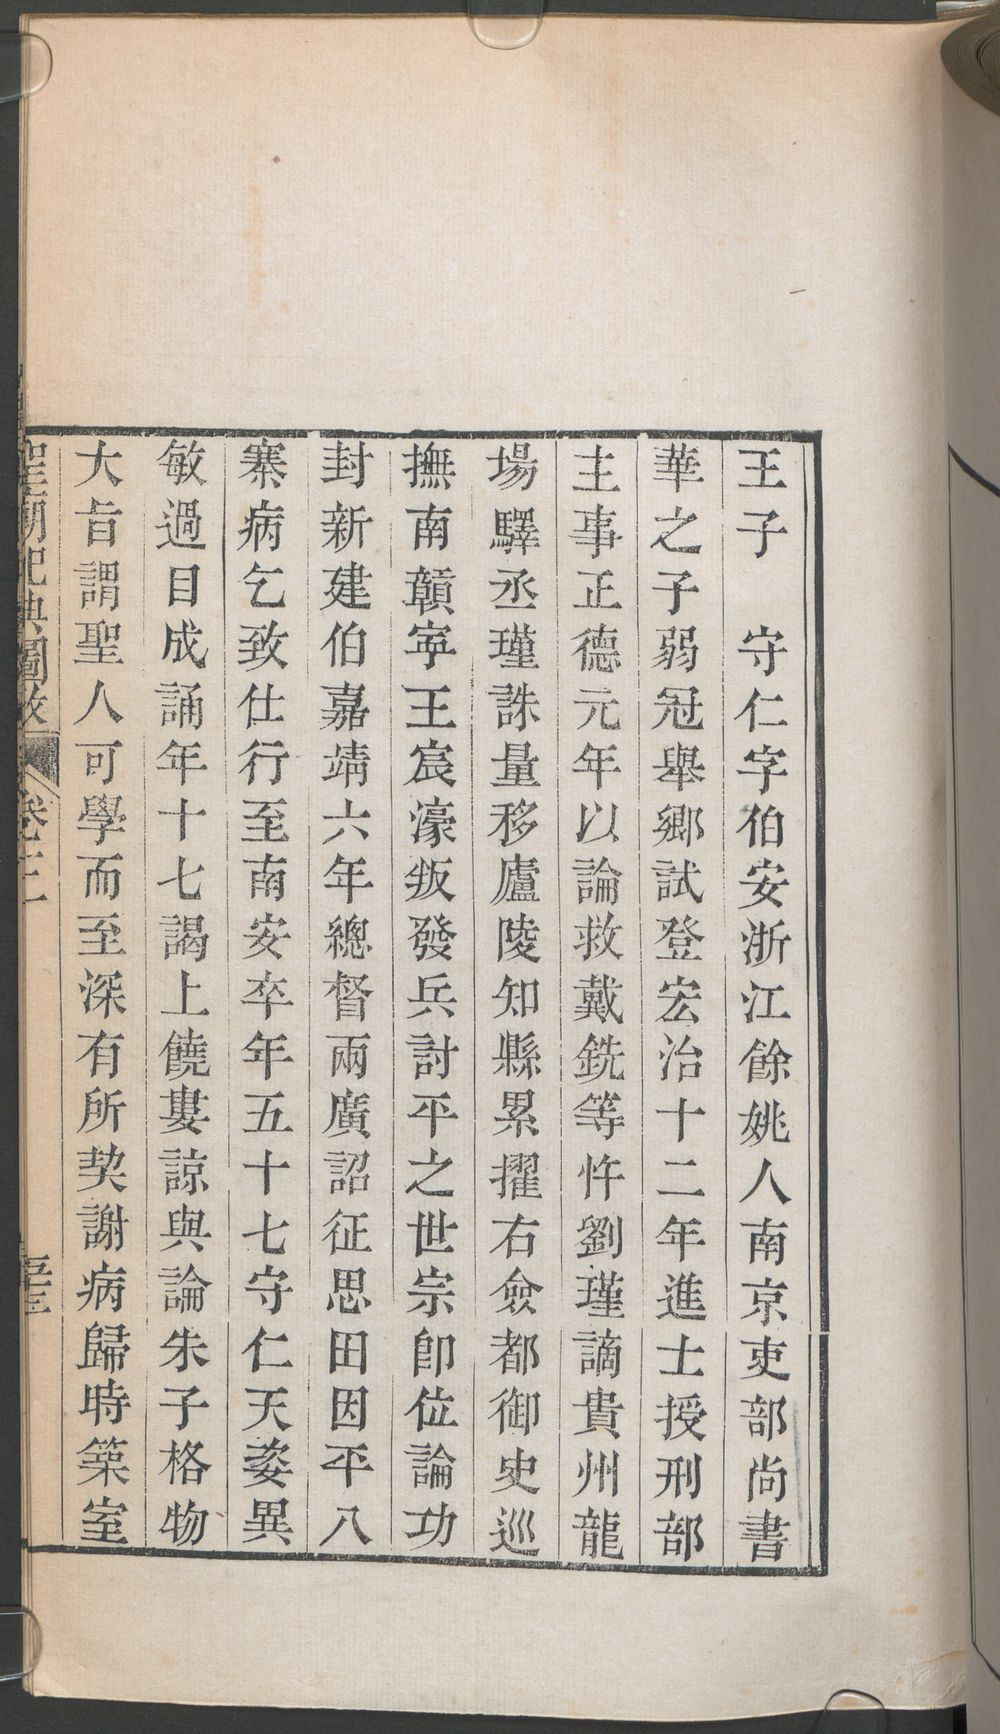 王子　守仁字伯安浙江餘姚人南京吏部尚書
華之子弱冠舉鄉試登宏治十二年進士授刑部
主事正德元年以論救戴銑等忤劉瑾謫貴州龍
場驛丞瑾誅量移廬陵知縣累擢右僉都御史巡
撫南贛寧王宸濠叛發兵討平之世宗卽位論功
封新建伯嘉靖六年總督兩廣詔征思田因平八
寨病乞致仕行至南安卒年五十七守仁天姿異
敏過目成誦年十七謁上饒婁諒與論朱子格物
大旨謂聖人可學而至深有所契謝病歸時築室
聖朝祀典圖攷　卷三